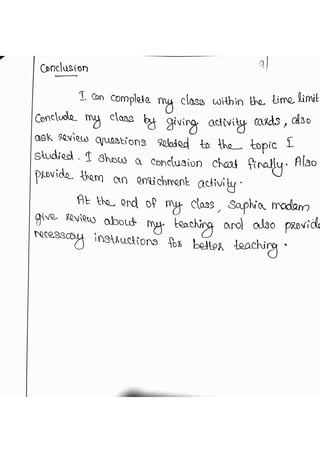 9/
Conclusion
I can complete my class within the time limit
Conclude my class by giving activity cards, also
ask review questions related to the topic I
studied. I show a conclusion chart finally. Also
provide them an enrichment activity.
At the end of my class, Saphia madam
give review about my teaching and also provide
necessary instructions for better teaching.